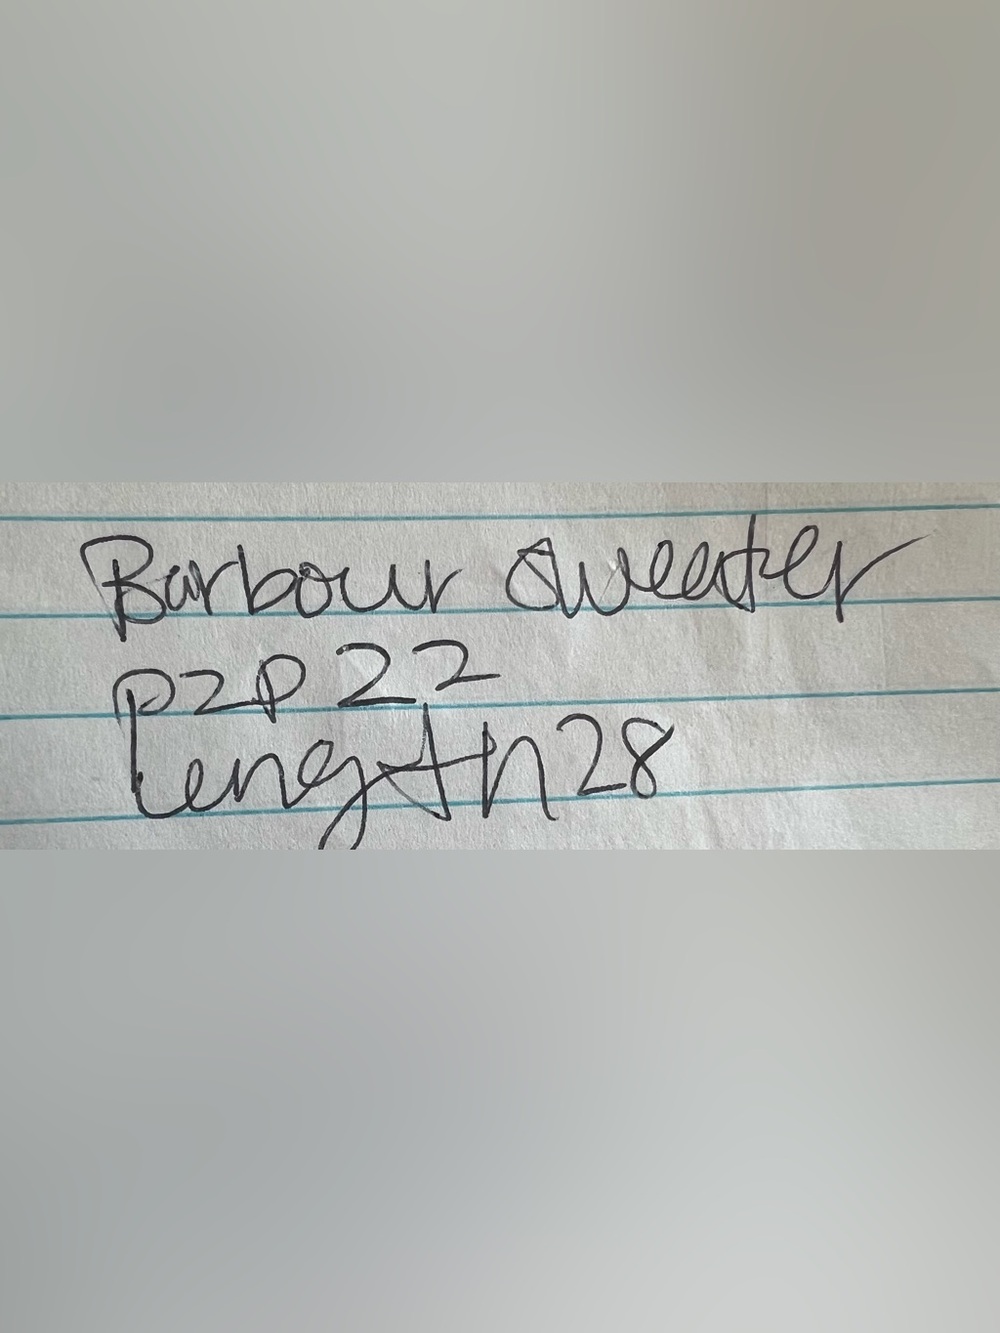 Barbour sweater
p2p 22
length 28